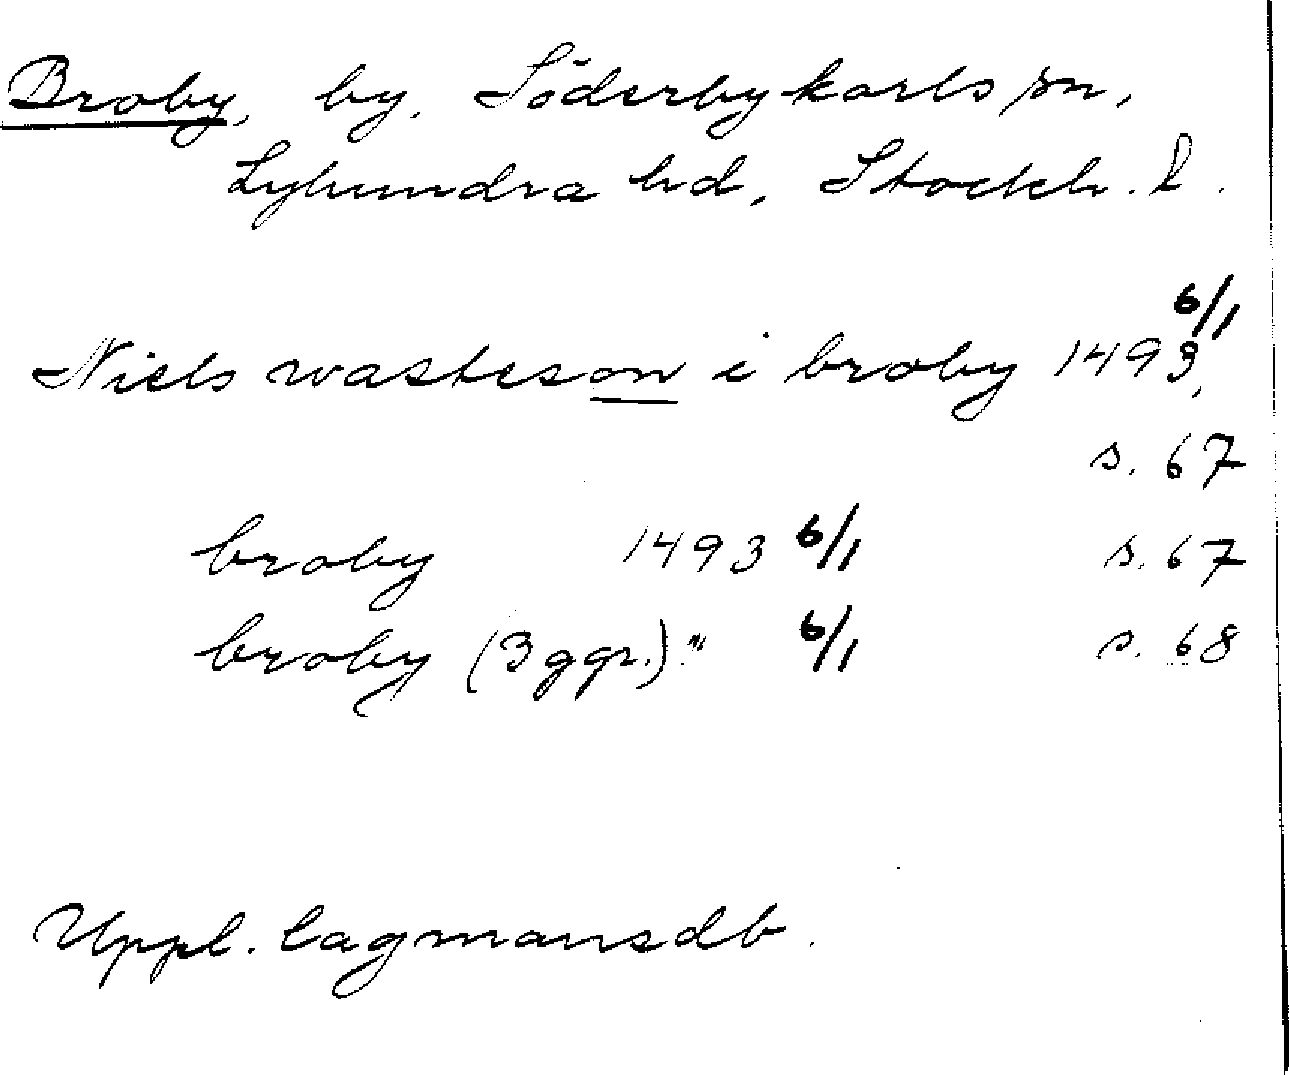 Broby, by, Söderbykarls sn,
Lyhundra hd, Stockh. l.
Niels wasteson i broby 1493 6/1,
s. 67
broby 1493 6/1 s. 67
broby (3 ggr.) " 6/1 s. 68
Uppl. lagmansdb.